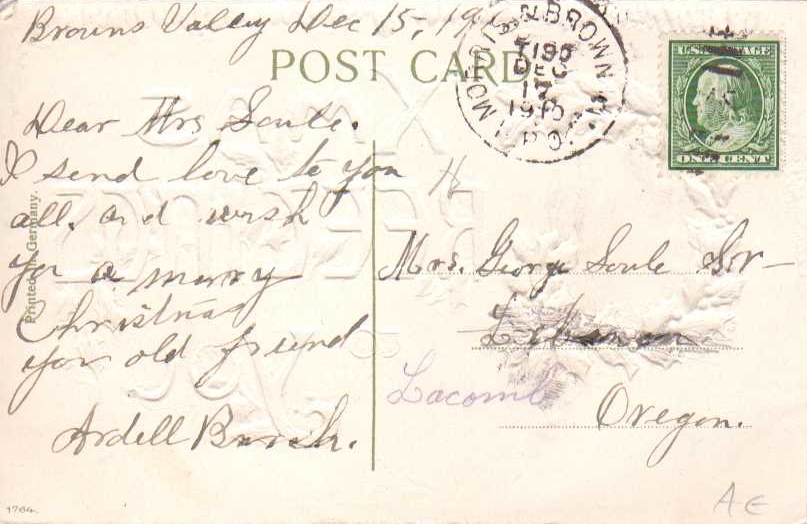 Browns Valley Dec 15, 19
POST CARD
Dear Mrs Soule.
I send love to you
all. and wish
you a merry
Christmas
your old friend
Ardell Brush.
Printed in Germany.
1764.
& BROWN
DEC
17
1910
R.P.O.
U.S. POSTAGE
ONE CENT
Mrs. George Soule Sr
Lebanon.
Lacomb
Oregon.
AE